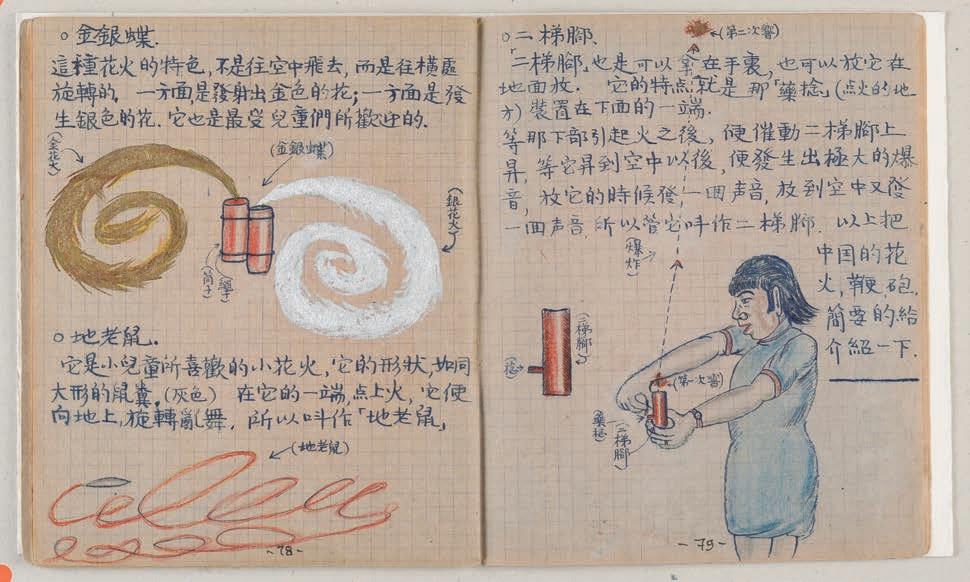 ○金銀蝶.
這種花火的特色,不是往空中飛去,而是往橫處
旋轉的. 一方面是發射出金色的花;一方面是發
生銀色的花.它也是最受兒童們所歡迎的.
(金花火)
(金銀蝶)
(銀花火)
(筒子)
○地老鼠.
它是小兒童所喜歡的小花火,它的形狀,如同
大形的鼠糞.(灰色) 在它的一端,点上火,它便
向地上,旋轉亂舞. 所以叫作「地老鼠」
(地老鼠)
-78-
○二梯腳、
(第二次響)
「二梯腳」也是可以拿在手裏,也可以放它在
地面放. 它的特点就是那「藥捻」(点火的地
方)裝置在下面的一端.
等那下部引起火之後,便催動二梯腳上
昇,等它昇到空中以後,便發生出極大的爆
音,放它的時候發一回声音,放到空中又發
一回声音.所以管它叫作二梯腳. 以上把
中国的花
火,鞭,砲.
簡要的給
介紹一下.
(爆炸)
(二梯腳)
(第一次響)
(藥捻)
(二梯腳)
-79-